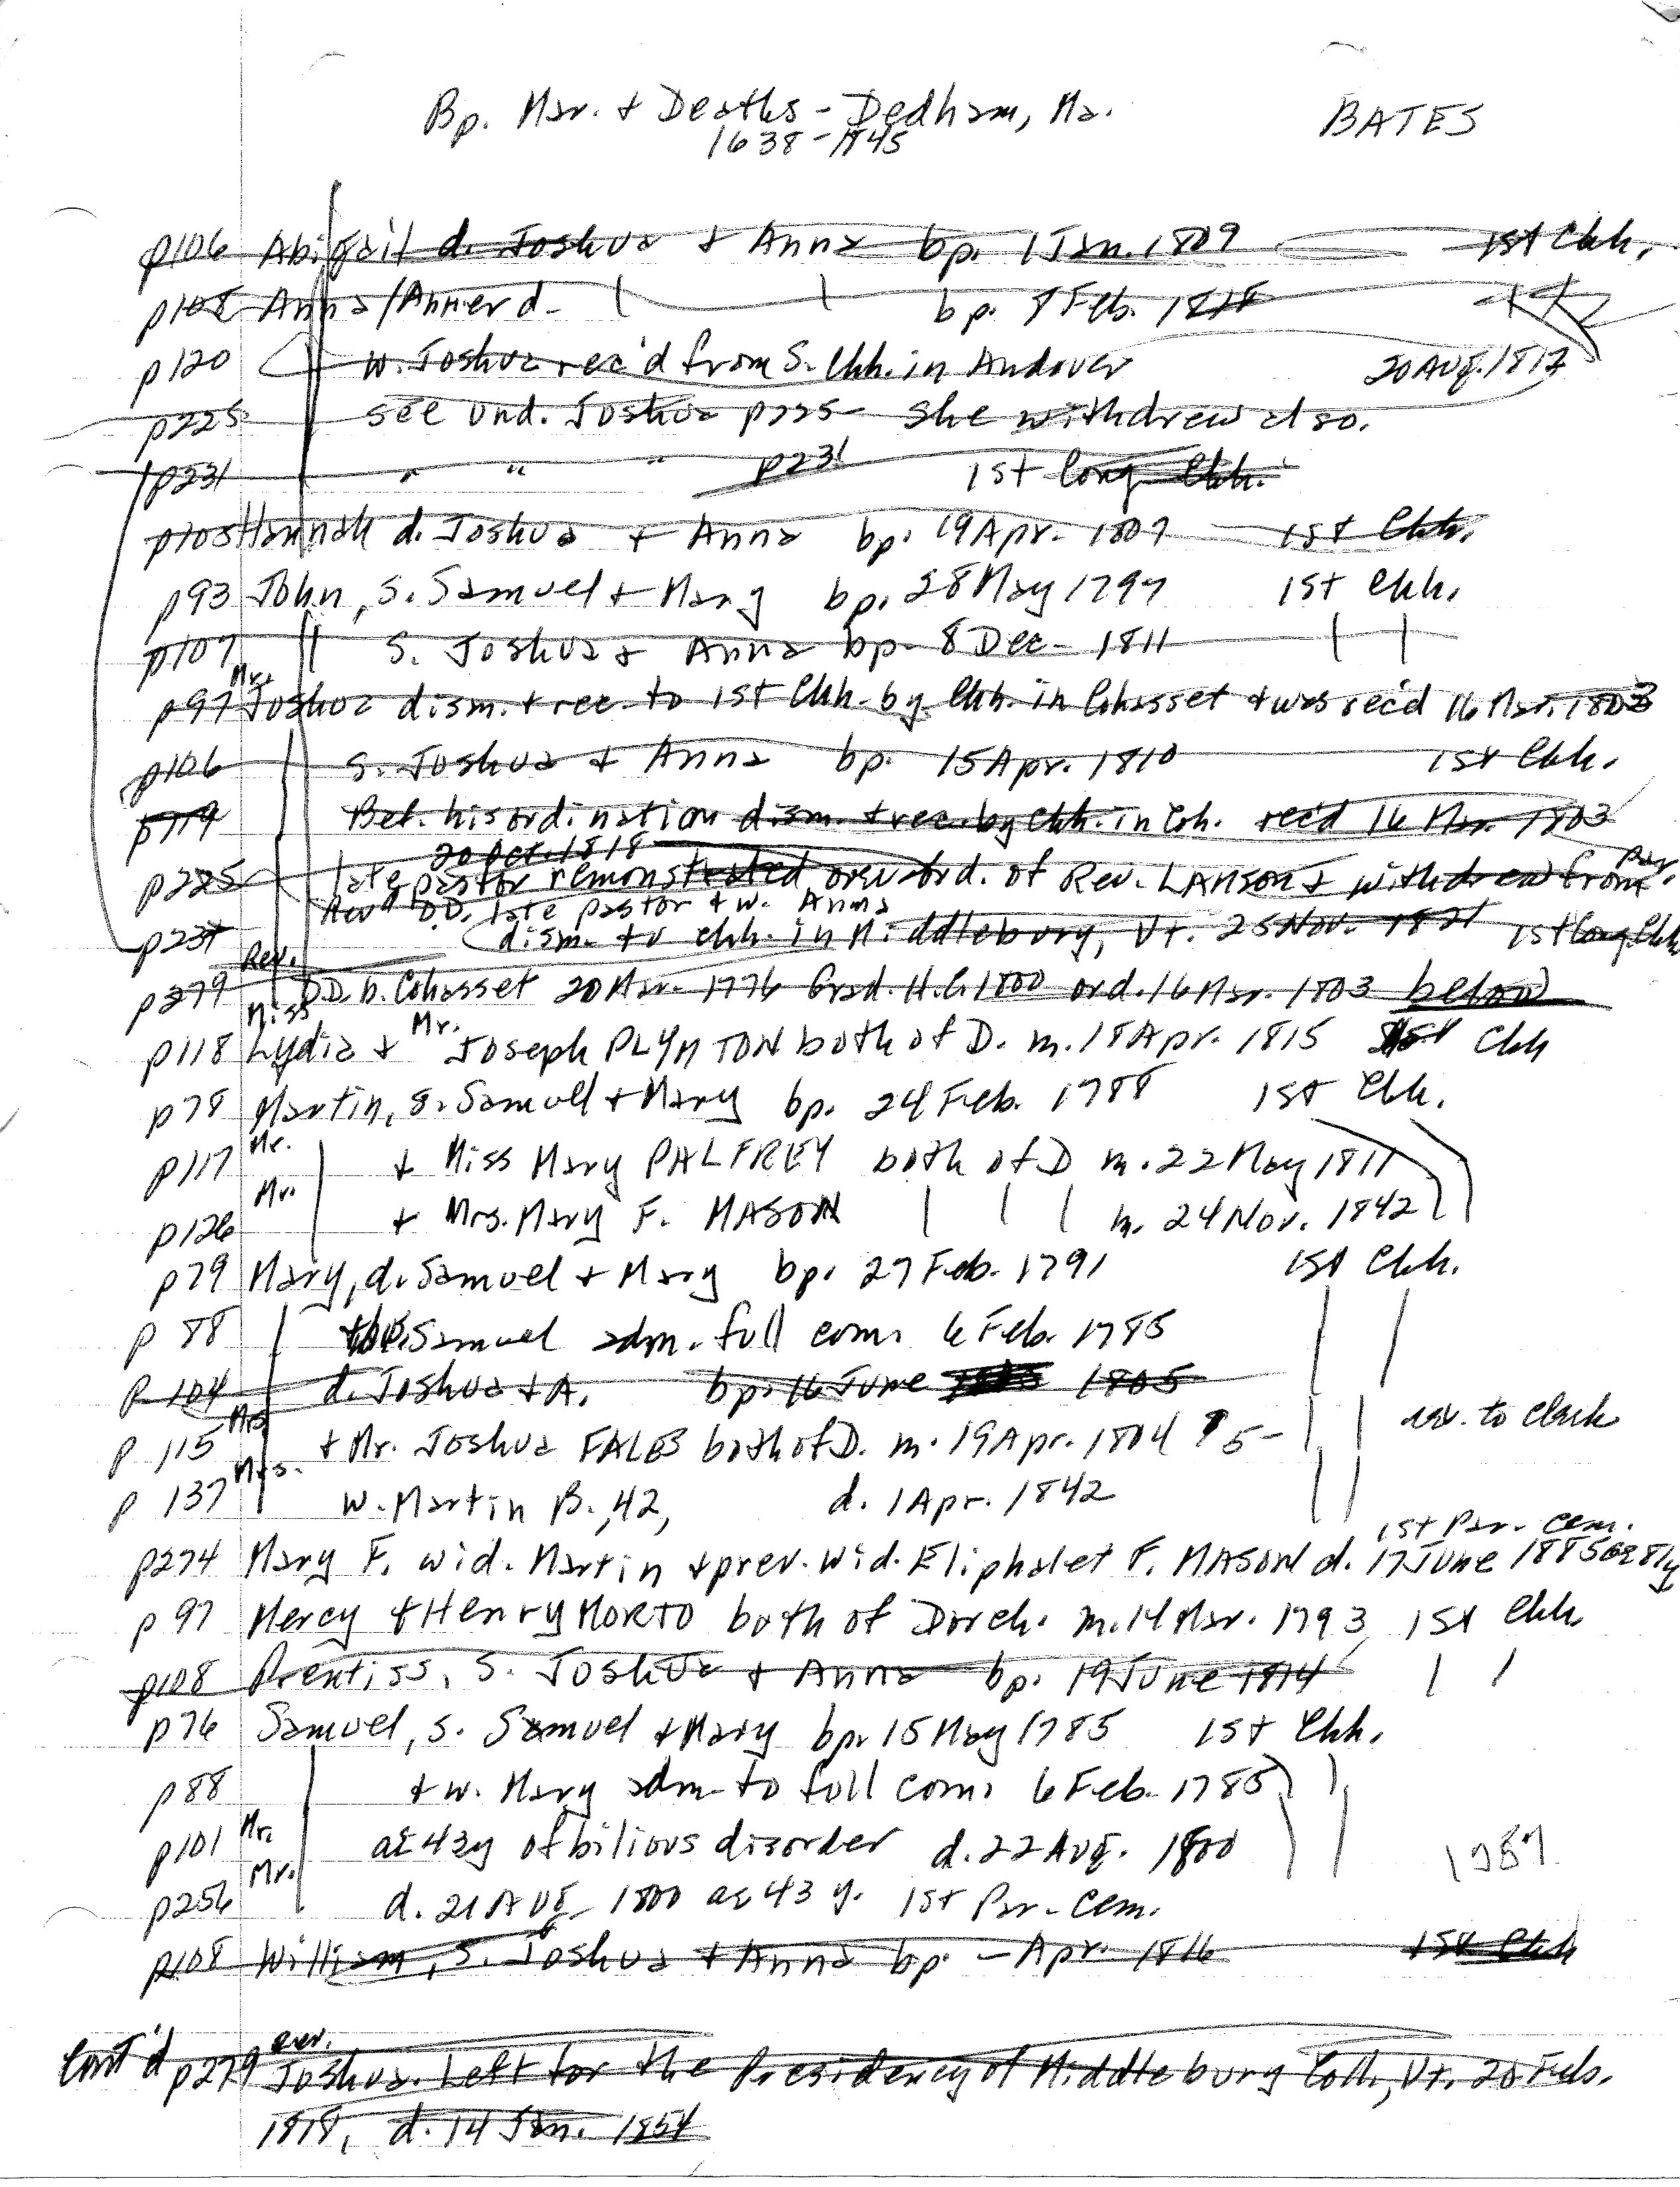 Bp. Mar. + Deaths - Dedham, Ma. BATES
1638-1845
p106 Abigail d. Joshua + Anna bp. 1 Jan. 1809 1st Chh.
p108 Anna/Anner d. bp. 8 Feb. 1818
p120 w. Joshua rec'd from S. Chh. in Andover 20 Aug. 1812
p225 see und. Joshua p225 - She withdrew also.
p231 " " " p231 1st Cong Chh.
p105 Hannah d. Joshua + Anna bp. 19 Apr. 1807 1st Chh.
p93 John, s. Samuel + Mary bp. 28 May 1797 1st Chh.
p107 s. Joshua + Anna bp. 8 Dec. 1811
Mr.
p97 Joshua dism. + rec. to 1st Chh. by Chh. in Cohasset + was rec'd 16 Mar. 1803
p106 s. Joshua + Anna bp. 15 Apr. 1810 1st Chh.
p119 Bef. his ordination dism. + rec. by Chh. in Coh. rec'd 16 Mar. 1803
20 Oct. 1818
p225 late pastor remonstrated over ord. of Rev. LAMSON + withdrew from Par.
Rev. D.D. late pastor + w. Anna
p231 dism. to chh. in Middlebury, Vt. 25 Nov. 1821 1st Cong Chh
Rev.
p279 D.D. b. Cohasset 20 Mar. 1776 Grad. H.C. 1800 ord. 16 Mar. 1803 below
Miss Mr.
p118 Lydia + Joseph PLYMTON both of D. m. 18 Apr. 1815 1st Chh
p78 Martin, s. Samuel + Mary bp. 24 Feb. 1788 1st Chh.
p117 Mr. + Miss Mary PALFREY both of D m. 22 May 1811
p126 Mr. + Mrs. Mary F. MASON m. 24 Nov. 1842
p79 Mary, d. Samuel + Mary bp. 27 Feb. 1791 1st Chh.
p 88 Samuel adm. full com. 6 Feb. 1785
p 104 d. Joshua + A. bp. 16 June 1805
p 115 Mrs + Mr. Joshua FALES both of D. m. 19 Apr. 1804 ? 5- to Clark
p 137 Mrs. w. Martin B., 42, d. 1 Apr. 1842
1st Par. Cem.
p274 Mary F. wid. Martin + prev. wid. Eliphalet F. MASON d. 17 June 1885 ae 81y
p 97 Mercy + Henry MORTO both of Dorch. m. 14 Mar. 1793 1st Chh
p108 Prentiss, s. Joshua + Anna bp. 19 June 1814
p76 Samuel, s. Samuel + Mary bp. 15 May 1785 1st Chh.
p88 + w. Mary adm. to full com. 6 Feb. 1785
p101 Mr. ae 43y of bilious disorder d. 22 Aug. 1800 1787
p256 Mr. d. 21 Aug 1800 ae 43 y. 1st Par. Cem.
p108 William, s. Joshua + Anna bp. - Apr. 1816 1st Chh
Rev.
Cont'd p279 Joshua. Left for the Presidency of Middlebury Coll., Vt. 20 Feb.
1818, d. 14 Jan. 1854